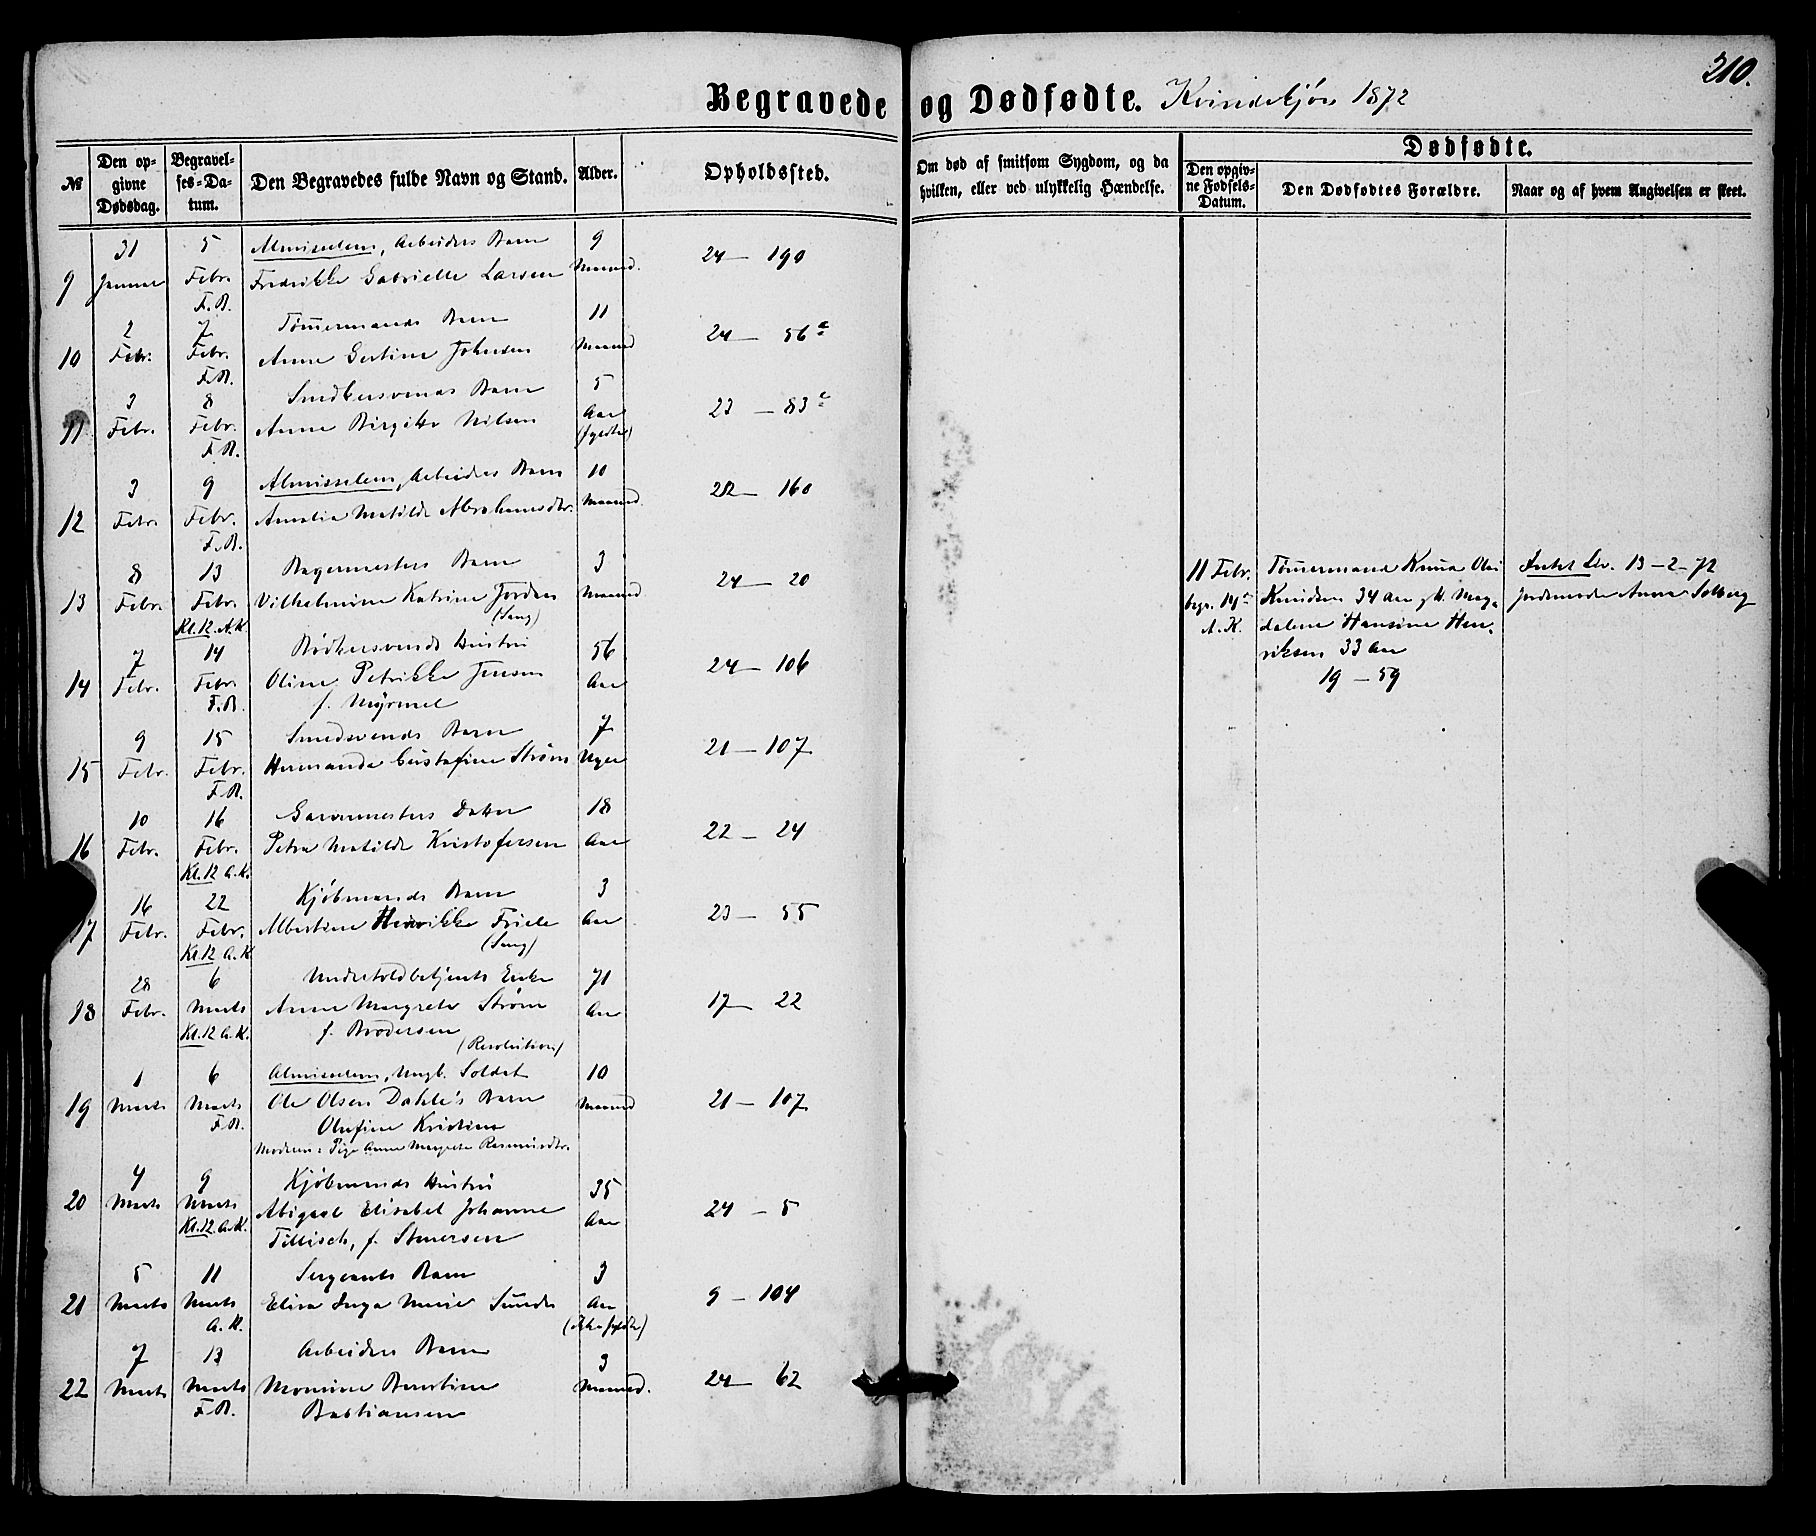 210.
Begravede og Dødfødte. Kvindekjøn 1872
№
Den opgivne Dødsdag.
Begravelses-Datum.
Den Begravedes fulde Navn og Stand.
Alder.
Opholdssted.
Om død af smitsom Sygdom, og da hvilken, eller ved ulykkelig Hændelse.
Dødfødte.
Den opgivne Fødsels-Datum.
Den Dødfødtes Forældre.
Naar og af hvem Angivelsen er skeet.
9 31 Januar 5 Febr. F.B. Almisselem, Arbeiders Barn
Fredrikke Gabrielle Larsen 9 Maaned. 24 — 190
10 2 Febr. 7 Febr. F.B. Tømmermands Barn
Anne Gertine Johnsen 11 Maaned 24 — 56 a
11 3 Febr. 8 Febr. F.B. Barn
Anne Birgitte Nilsen 5 Aar (fyldte) 23 — 83 c
12 3 Febr. 9 Febr. F.B. Almisselem, Arbeiders Barn
Amalia Matilde Abrahamsdtr. 10 Maaned. 22 — 160
13 8 Febr. 13 Febr. Kl. 12. A.K. Bagermesters Barn
Vilhelmine Katrine Jordan
(Sang) 3 Maaned. 24 — 20
14 7 Febr. 14 Febr. F.B. Bødkersvends Hustru
Oline Petrikke Jensen
f. Myrmel 56 Aar 24 — 106
15 9 Febr. 15 Febr. F.B. Smedsvends Barn
Hermanda Gustafine Strøm 7 Uger 21 — 107
16 10 Febr. 16 Febr. Kl. 12 A.K. Garvermesters Datter
Petra Matilde Kristofersen 18 Aar 22 — 24
17 16 Febr. 22 Febr. Kl. 12 A.K. Kjøbmands Barn
Albertine Henrikke Friele
(Sang) 3 Aar 23 — 55
18 28 Febr. 6 Marts Kl. 12 A.K. Undertoldbetjents Enke
Anne Margrete Strøm
f. Brodersen
(Resolution) 71 Aar 17 — 22
19 1 Marts 6 Marts F.B. Almisselem, Ungk. Soldat
Ole Olsen Dahle's Barn
Olufine Kristine
Moderen: Pige Anne Margrete Rasmusdtr. 10 Maaned 21 — 107
20 4 Marts 9 Marts Kl. 12. A.K. Kjøbmands Hustru
Abigael Elisabet Johanne
Tillisch, f. 35 Aar 24 — 5
21 5 Marts 11 Marts A.K. Sergeants Barn
Elisa Inga Marie Sunde 3 Aar (ikke fyldte) 9 — 104
22 7 Marts 13 Marts F.B. Arbeiders Barn
Monsine Berntine
Bastiansen 3 Maaned. 24 — 62
11 Febr.
begr. 14de
A.K.
Tømmermand Knud Olai
Knudsen 34 Aar gk. Mag-
dalene Hansine Hen-
riksen 33 Aar
19 — 59
Intet Liv. 13 — 2 — 72
Jordemoder Anna Solberg